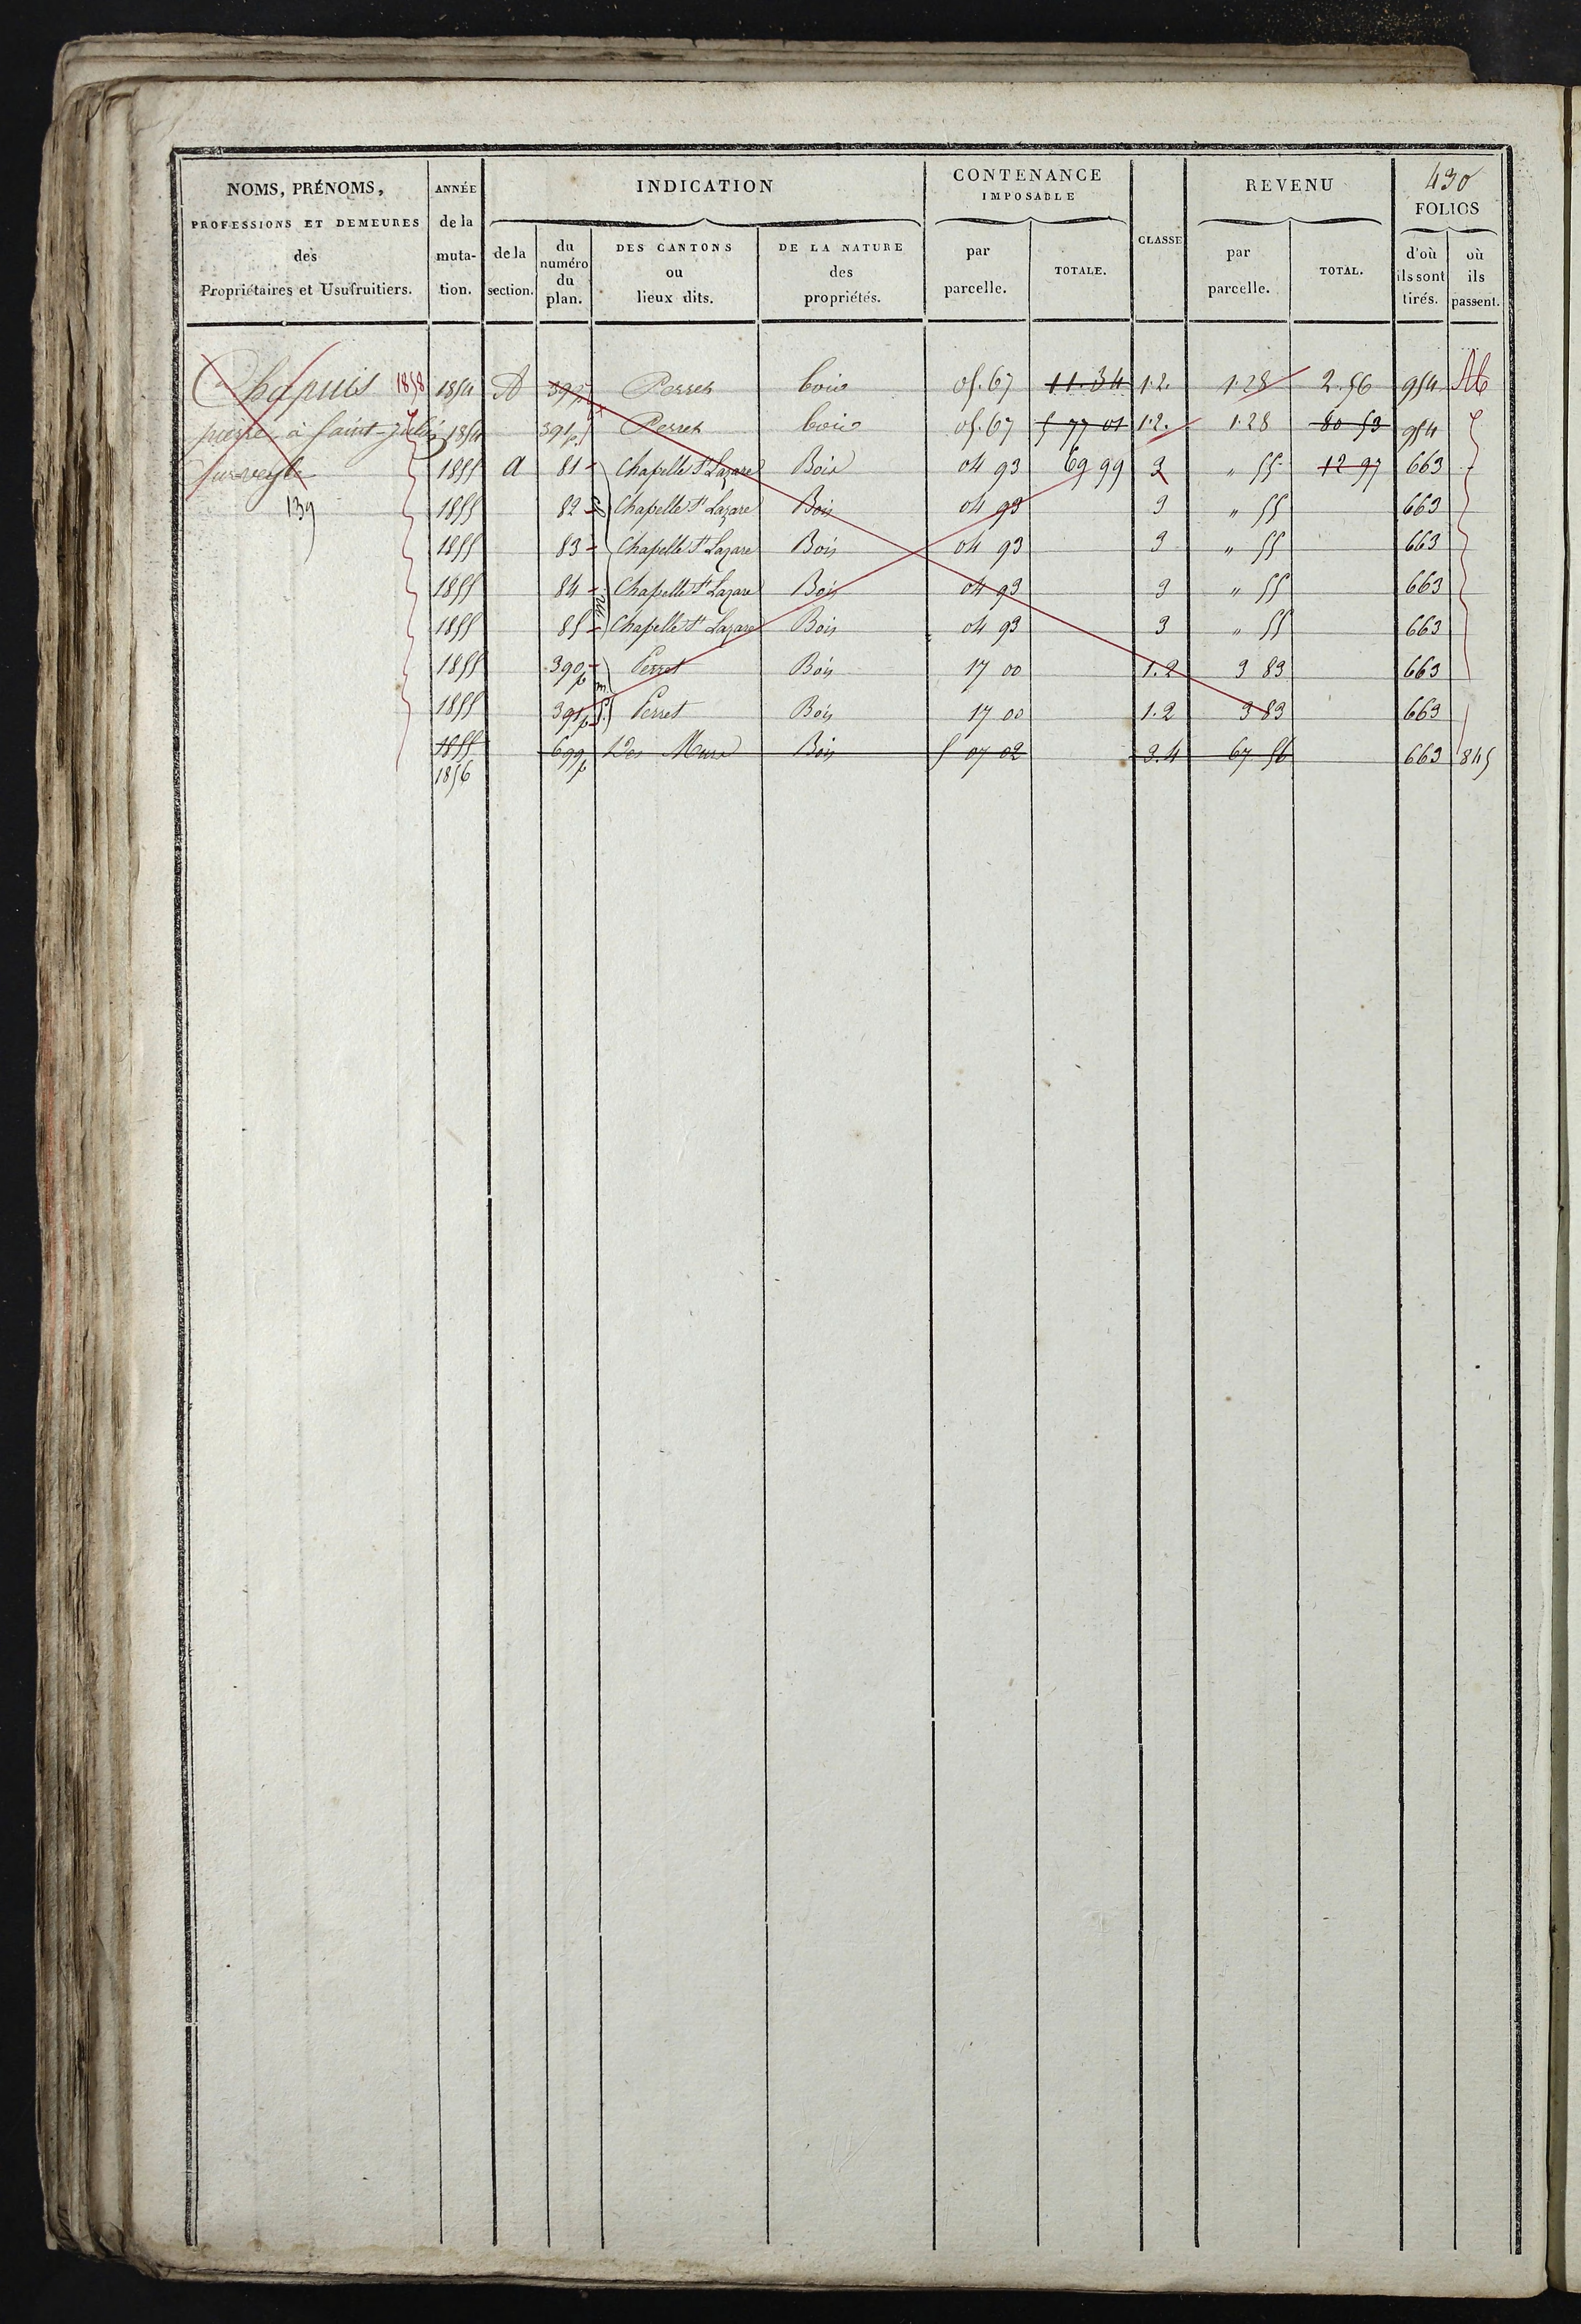 430
NOMS, PRÉNOMS, PROFESSIONS ET DEMEURES des Propriétaires et Usufruitiers.
ANNÉE de la mutation.
INDICATION
de la section.
du numéro du plan.
DES CANTONS ou lieux dits.
DE LA NATURE des propriétés.
CONTENANCE IMPOSABLE
par parcelle.
TOTALE.
CLASSE
REVENU
par parcelle.
TOTAL.
FOLIOS
d'où ils sont tirés.
où ils passent.
Chapuis 1858 1854 A 390p Perret bois 05.67 11.34 1.2. 1.28 2.56 954
pierre à Saint-julien 1854 391p Perret bois 05.67 5 77 01 1.2. 1.28 80 53 954
sur veyle 1855 a 81 Chapelle St Lazare Bois 04 93 69 99 3 " 55 12 97 663
139 1855 82 Chapelle St Lazare Bois 04 93 3 " 55 663
1855 83 Chapelle St Lazare Bois 04 93 3 " 55 663
1855 84 Chapelle St Lazare Bois 04 93 3 " 55 663
1855 85 Chapelle St Lazare Bois 04 93 3 " 55 663
1855 390p Perret Bois 17 00 1.2 3 83 663
1855 391p Perret Bois 17 00 1.2 3 83 663
1855 699p Des Murs Bois 5 07 02 3.4 67 56 663 845
1856